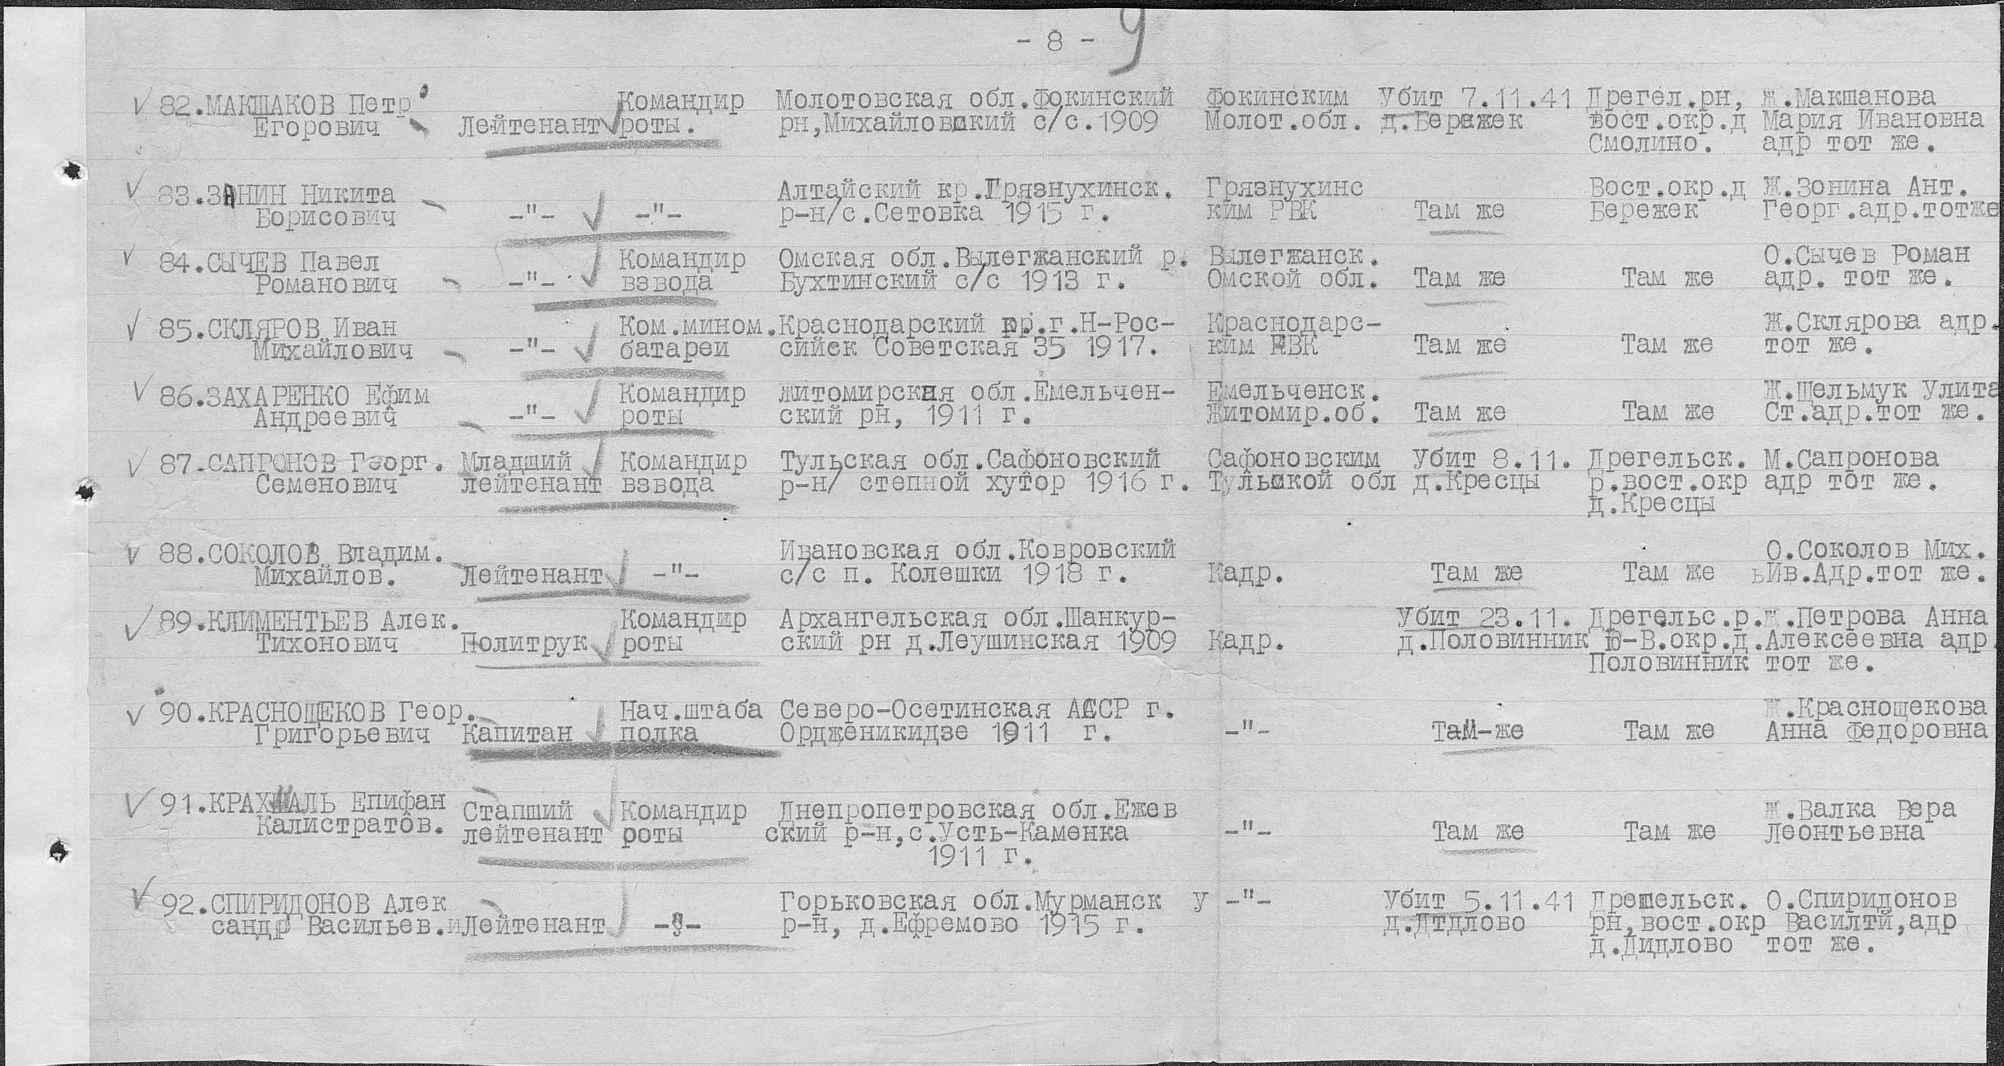 - 8 - 9
82.МАКШАКОВ Петр Командир Молотовская обл.Фокинский Фокинским Убит 7.11.41 Дрегел.рн, ж.Макшанова
Егорович Лейтенант роты. рн,Михайловский с/с.1909 Молот.обл. д.Бережек вост.окр.д Мария Ивановна
Смолино. адр тот же.
83.ЗАНИН Никита Алтайский кр.Грязнухинск. Грязнухинс Вост.окр.д Ж.Зонина Ант.
Борисович -"- -"- р-н/с.Сетовка 1915 г. ким РВК Там же Бережек Георг.адр.тотже
84.СЫЧЕВ Павел Командир Омская обл.Вылегжанский р. Вылегжанск. О.Сычев Роман
Романович -"- взвода Бухтинский с/с 1913 г. Омской обл. Там же Там же адр. тот же.
85.СКЛЯРОВ Иван Ком.мином.Краснодарский кр.г.Н-Рос- Краснодарс- Ж.Склярова адр.
Михайлович -"- батареи сийск Советская 35 1917. ким РВК Там же Там же тот же.
86.ЗАХАРЕНКО Ефим Командир житомирская обл.Емельчен- Емельченск. Ж.Шельмук Улита
Андреевич -"- роты ский рн, 1911 г. Житомир.об. Там же Там же Ст.адр.тот же.
87.САПРОНОВ Георг. Младший Командир Тульская обл.Сафоновский Сафоновским Убит 8.11. Дрегельск. М.Сапронова
Семенович лейтенант взвода р-н/ степной хутор 1916 г. Тульской обл д.Кресцы р.вост.окр адр тот же.
д.Кресцы
88.СОКОЛОВ Владим. Ивановская обл.Ковровский О.Соколов Мих.
Михайлов. Лейтенант -"- с/с п. Колешки 1918 г. Кадр. Там же Там же ьИв.Адр.тот же.
89.КЛИМЕНТЬЕВ Алек. Командир Архангельская обл.Шанкур- Убит 23.11. Дрегельс.р.ж.Петрова Анна
Тихонович Политрук роты ский рн д.Леушинская 1909 Кадр. д.Половинник Ю-В.окр.д.Алексеевна адр
Половинник тот же.
90.КРАСНОЩЕКОВ Геор. Нач.штаба Северо-Осетинская АССР г. Ж.Краснощекова
Григорьевич Капитан полка Ордженикидзе 1911 г. -"- Там-же Там же Анна Федоровна
91.КРАХМАЛЬ Епифан Стапший Командир Днепропетровская обл.Ежев Ж.Валка Вера
Калистратов. лейтенант роты ский р-н,с.Усть-Каменка -"- Там же Там же Леонтьевна
1911 г.
92.СПИРИДОНОВ Алек Горьковская обл.Мурманск у -"- Убит 5.11.41 Дрегельск. О.Спиридонов
сандр Васильев.иЛейтенант -"- р-н, д.Ефремово 1915 г. д.Дтдлово рн,вост.окр Василтй,адр
д.Дидлово тот же.